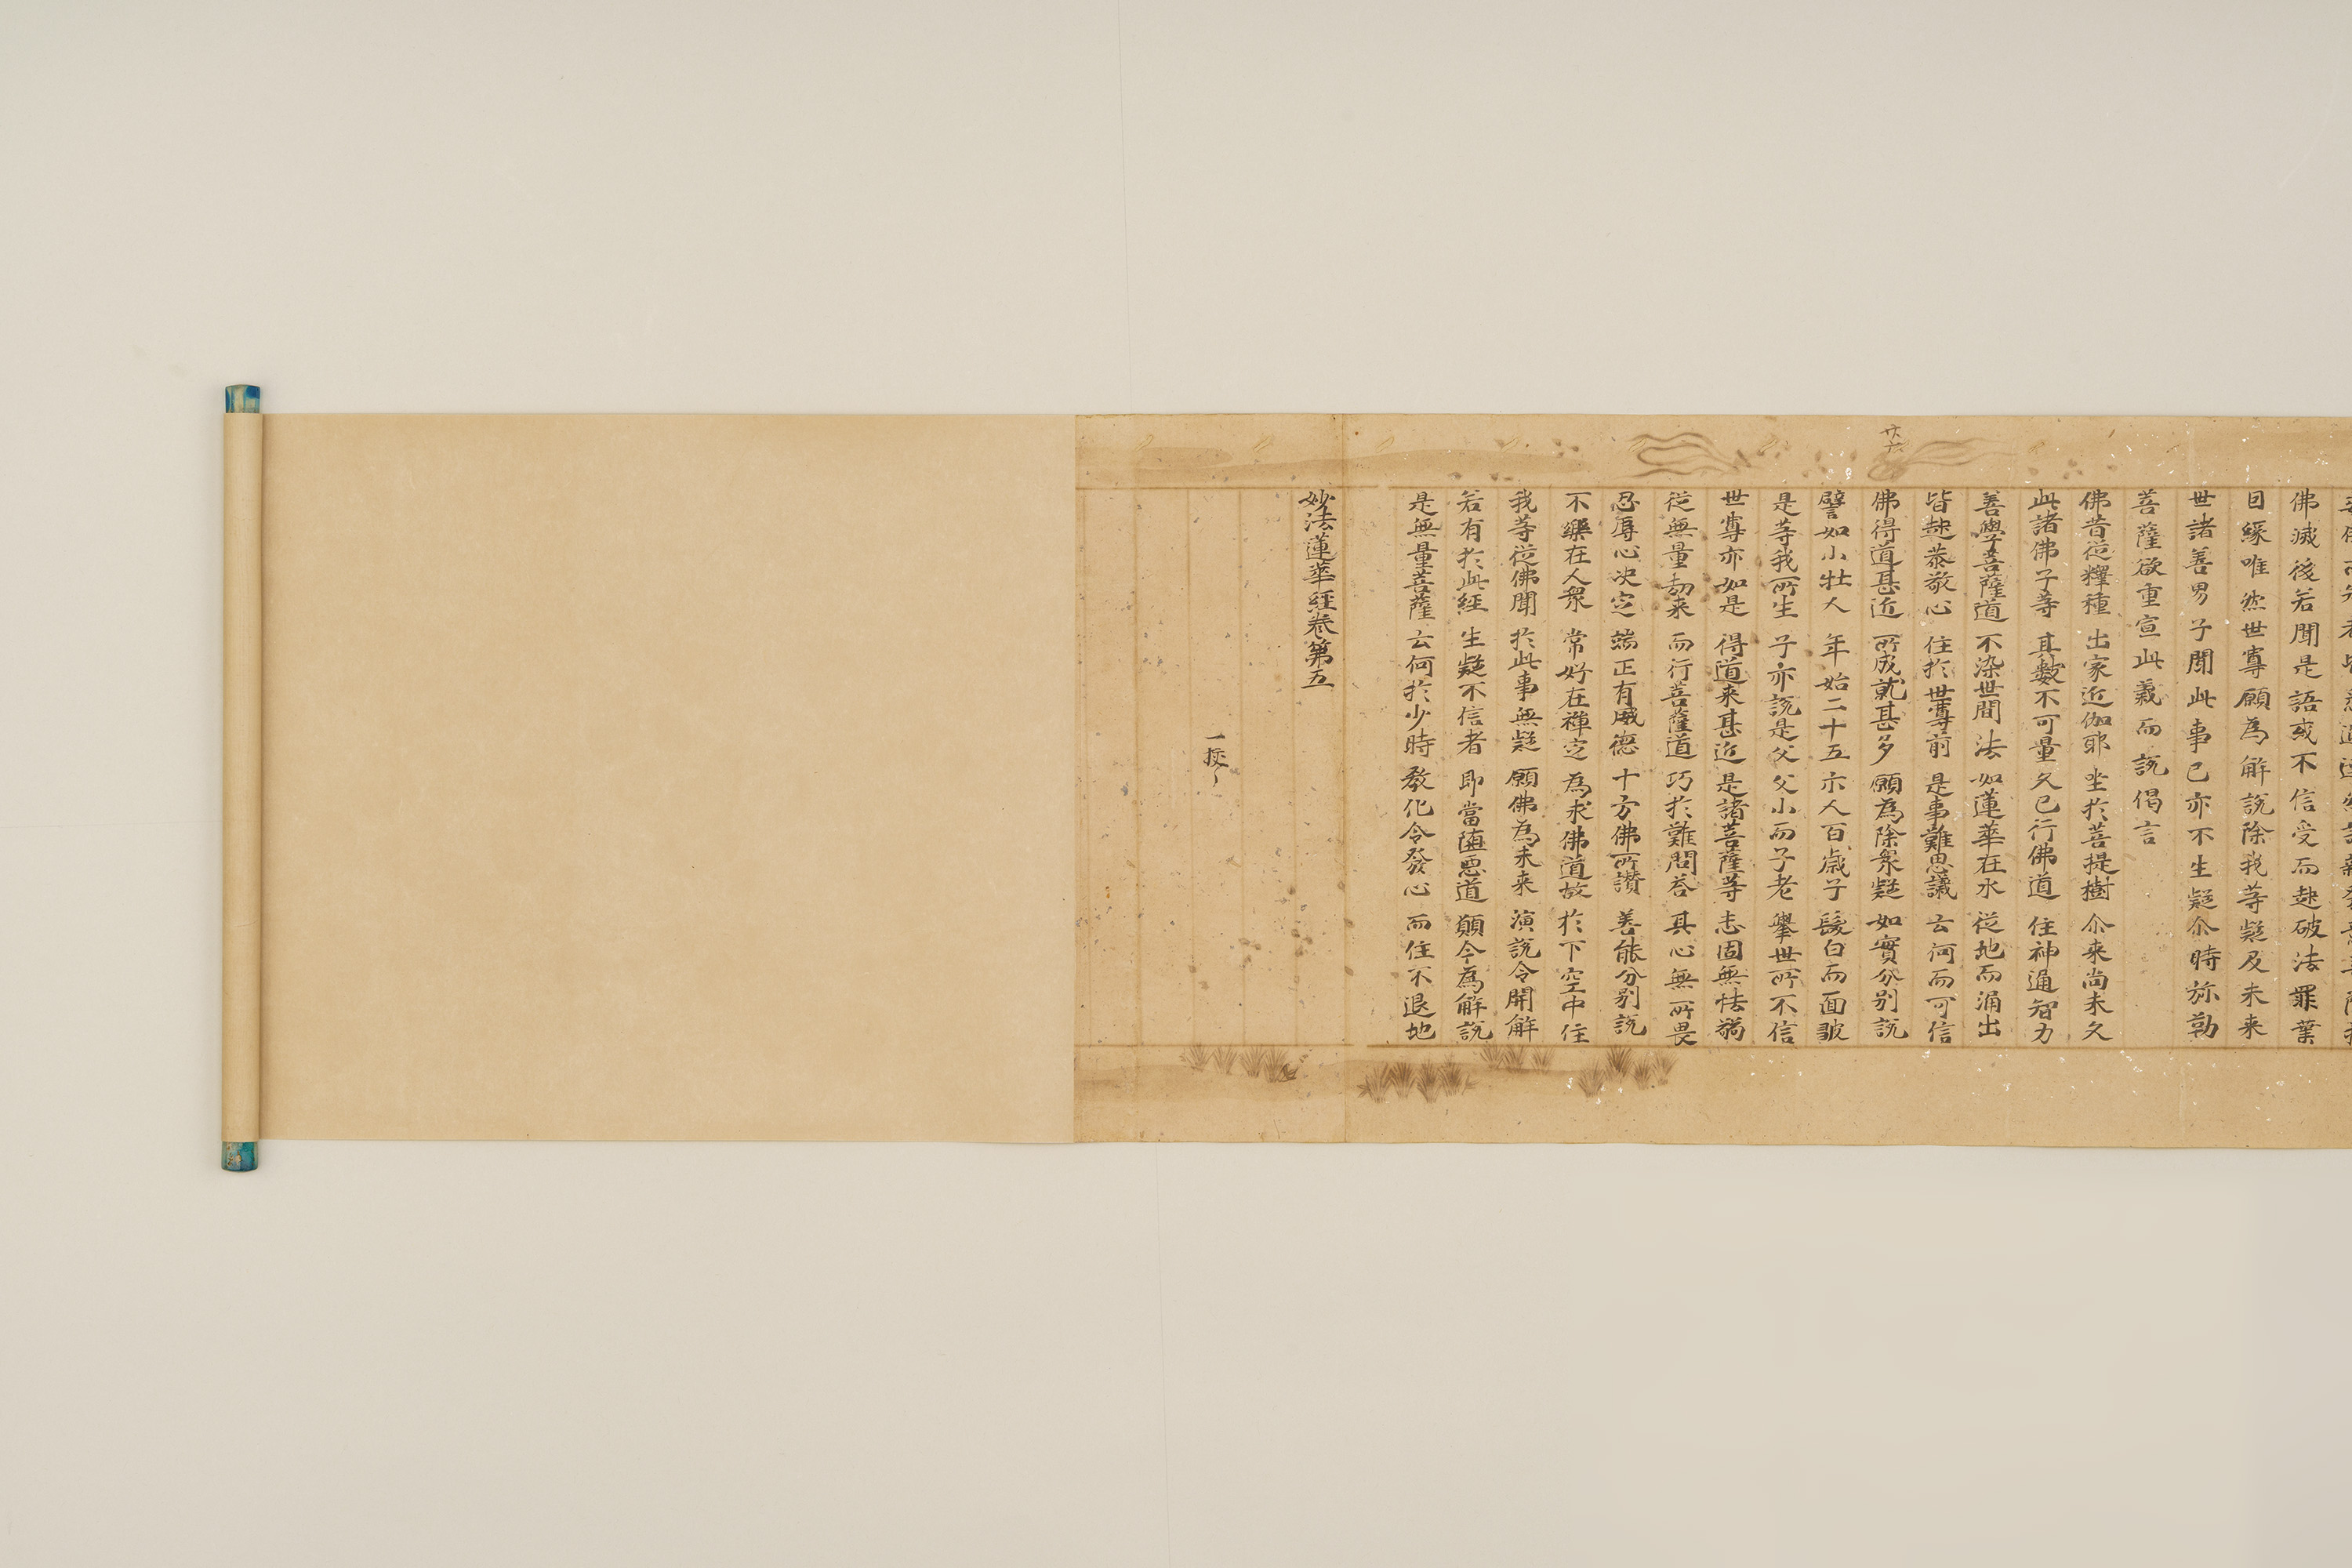 佛滅後若聞是語或不信受而起破法罪業
因緣唯然世尊願為解說除我等疑及未来
世諸善男子聞此事已亦不生疑尒時弥勒
菩薩欲重宣此義而說偈言
佛昔從釋種 出家近伽耶 坐於菩提樹 尒来尚未久
此諸佛子等 其數不可量 久已行佛道 住神通智力
善學菩薩道 不染世間法 如蓮華在水 從地而涌出
皆起恭敬心 住於世尊前 是事難思議 云何而可信
佛得道甚近 所成就甚多 願為除衆疑 如實分別說
譬如小壮人 年始二十五 示人百歳子 髮白而面皺
是等我所生 子亦說是父 父小而子老 舉世所不信
世尊亦如是 得道来甚近 是諸菩薩等 志固無怯弱
從無量劫来 而行菩薩道 巧於難問荅 其心無所畏
忍辱心决定 端正有威德 十方佛所讃 善能分別說
不樂在人衆 常好在禪定 為求佛道故 於下空中住
我等從佛聞 於此事無疑 願佛為未来 演說令開解
若有於此經 生疑不信者 即當墮惡道 願今為解說
是無量菩薩 云何於少時 教化令發心 而住不退地
妙法蓮華經卷第五
一挍〻
廿六